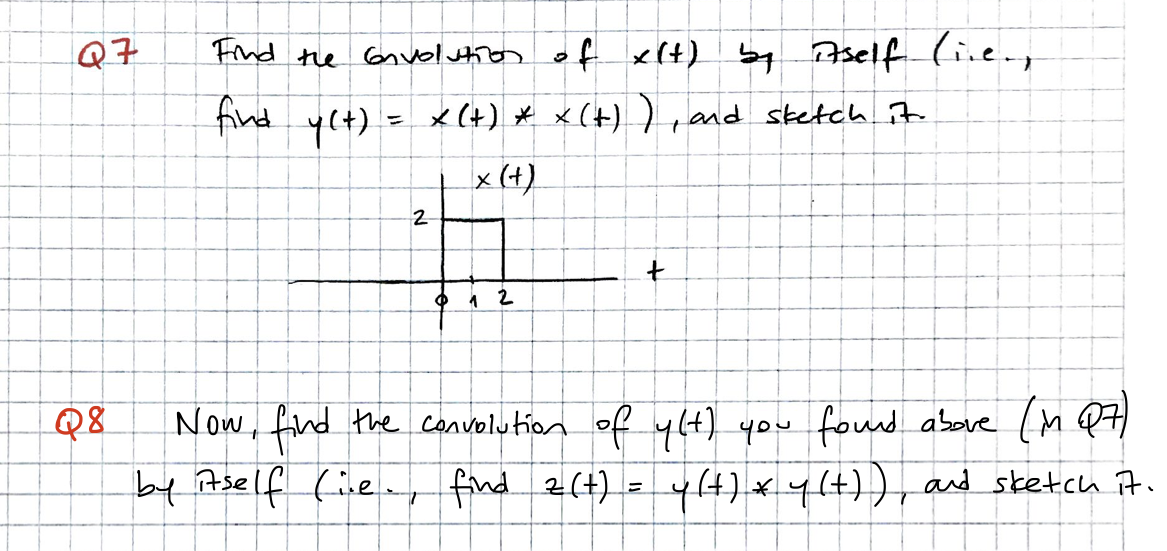 Q7 Find the convolution of x(t) by itself (i.e.,
find y(t) = x(t) * x(t) ), and sketch it.
x(t)
2
t
0 1 2
Q8 Now, find the convolution of y(t) you found above (in Q7)
by itself (i.e., find z(t) = y(t) * y(t)), and sketch it.